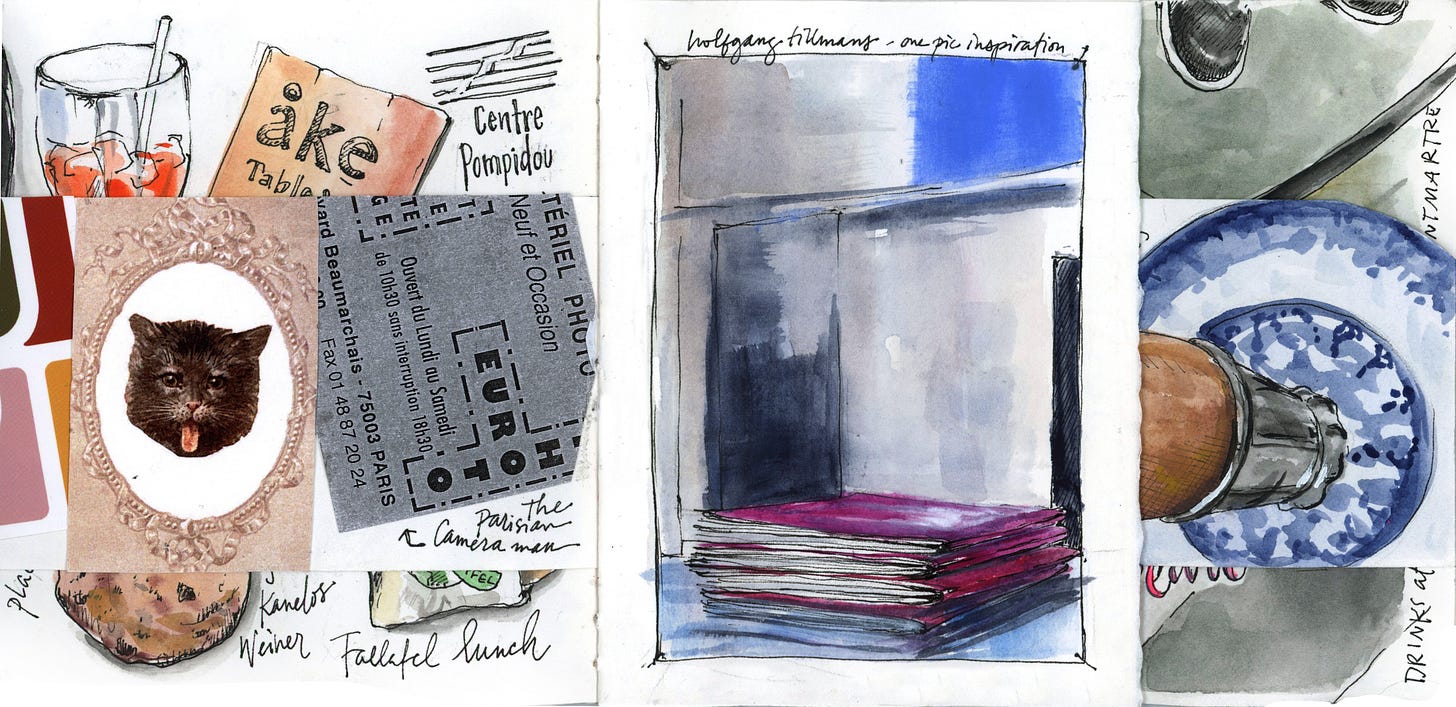 åke
Table
Centre
Pompidou
TÉRIEL PHOTO
Neuf et Occasion
EURO
PHOTO
Ouvert du Lundi au Samedi
de 10h30 sans interruption 18h30
vard Beaumarchais - 75003 PARIS
Fax 01 48 87 20 24
the
Parisian
Camera man
Kanelos
Weiner
Fallafel lunch
wolfgang tillmans - one pic inspiration
NTMARTRE
DRINKS at